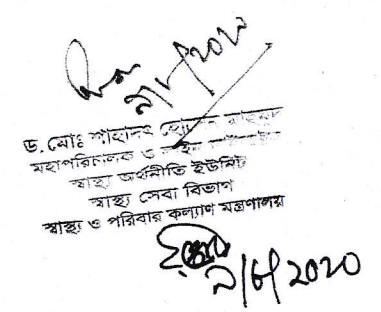 ৯/৮/২০২০
ড. মোঃ শাহাদৎ হোসেন মাহমুদ
মহাপরিচালক ও
স্বাস্থ্য অর্থনীতি ইউনিট
স্বাস্থ্য সেবা বিভাগ
স্বাস্থ্য ও পরিবার কল্যাণ মন্ত্রণালয়
৯/৮/২০২০